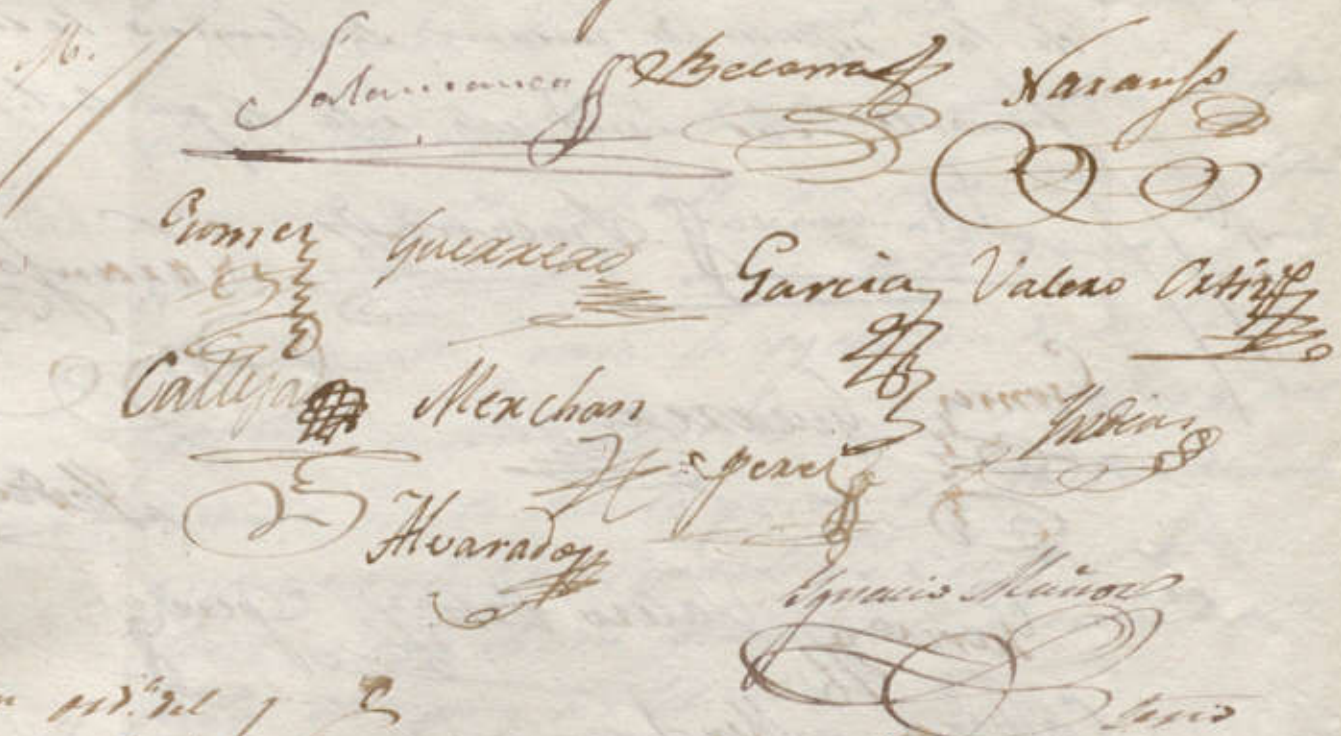 Salamanca Becerra Naranjo
Gomez Guerrero Garcia Valero Ortiz
Calleja Merchan Yndias
Perez
Alvarado
Ygnacio Muñoz
Srio